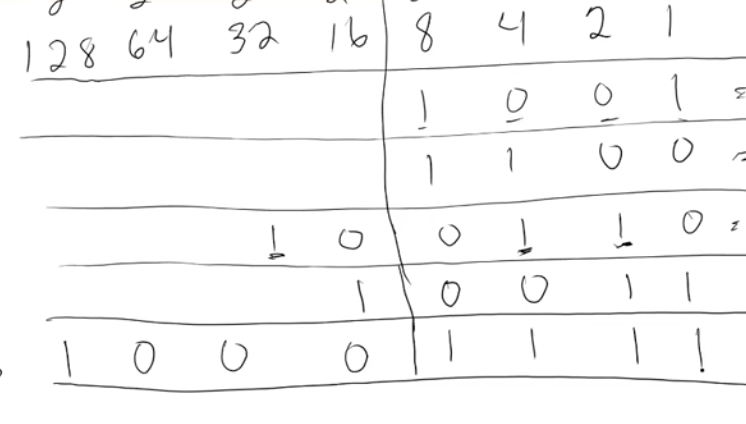 128 64 32 16 8 4 2 1
1 0 0 1 =
1 1 0 0
1 0 0 1 1 0 =
1 0 0 1 1
1 0 0 0 1 1 1 1